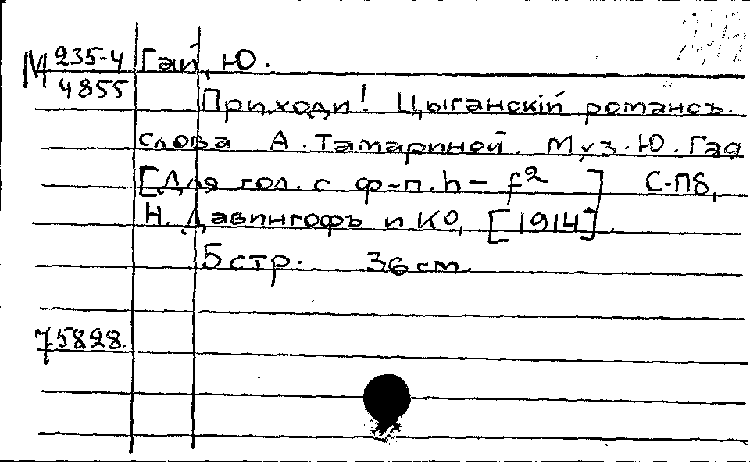 М 235-4 Гай, Ю.
4855
Приходи! Цыганскій романсъ.
слова А. Тамариной. Муз. Ю. Гая
[Для гол. с ф-п. h - f² ] С-Пб,
Н. Давингофъ и Ко, [1914]
5 стр. 36 см
75828.